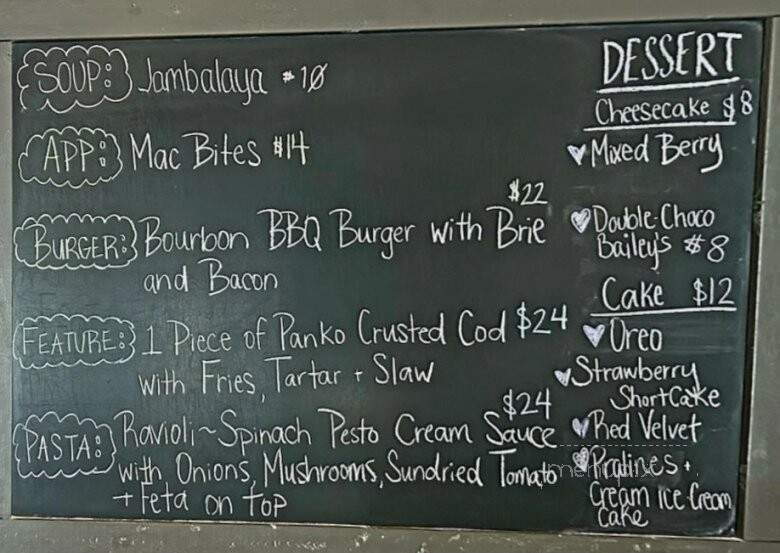 SOUP: Jambalaya $10
APP: Mac Bites $14
$22
BURGER: Bourbon BBQ Burger with Brie
and Bacon
FEATURE: 1 Piece of Panko Crusted Cod $24
with Fries, Tartar + Slaw
$24
PASTA: Ravioli~Spinach Pesto Cream Sauce
with Onions, Mushrooms, Sundried Tomato
+ Feta on top
DESSERT
Cheesecake $8
Mixed Berry
Double-Choco
Bailey's $8
Cake $12
Oreo
Strawberry
ShortCake
Red Velvet
Pralines +
Cream Ice Cream
Cake